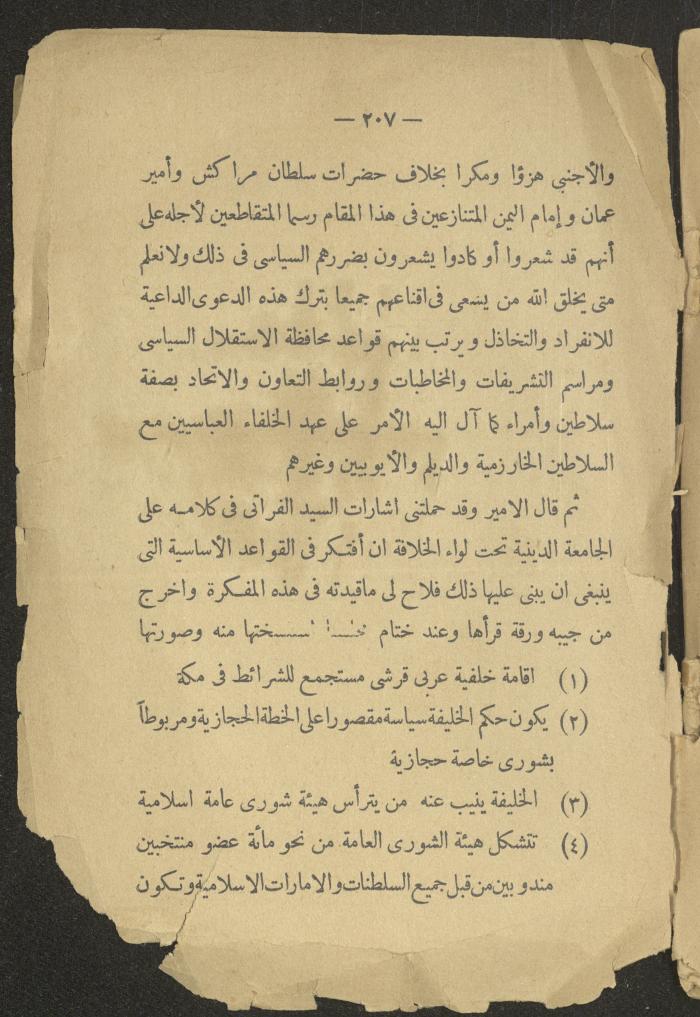 — ٢٠٧ —
والأجنبي هزؤا ومكرا بخلاف حضرات سلطان مراكش وأمير
عمان وإمام اليمن المتنازعين فى هذا المقام رسما المتقاطعين لأجله على
أنهم قد شعروا أو كادوا يشعرون بضررهم السياسى فى ذلك ولا نعلم
متى يخلق الله من يسعى فى اقناعهم جميعا بترك هذه الدعوى الداعية
للانفراد والتخاذل ويرتب بينهم قواعد محافظة الاستقلال السياسى
ومراسم التشريفات والمخاطبات وروابط التعاون والاتحاد بصفة
سلاطين وأمراء كما آل اليه الأمر على عهد الخلفاء العباسيين مع
السلاطين الخارزمية والديلم والأيوبيين وغيرهم
ثم قال الامير وقد حملتنى اشارات السيد الفراتى فى كلامه على
الجامعة الدينية تحت لواء الخلافة ان أفتكر فى القواعد الأساسية التى
ينبغى ان يبنى عليها ذلك فلاح لى ماقيدته فى هذه المفكرة واخرج
من جيبه ورقة قرأها وعند ختام منه وصورتها
(١) اقامة خلفية عربى قرشى مستجمع للشرائط فى مكة
(٢) يكون حكم الخليفة سياسة مقصورا على الخطة الحجازية ومربوطاً
بشورى خاصة حجازية
(٣) الخليفة ينيب عنه من يترأس هيئة شورى عامة اسلامية
(٤) تتشكل هيئة الشورى العامة من نحو مائة عضو منتخبين
مندوبين من قبل جميع السلطنات والامارات الاسلامية وتكون